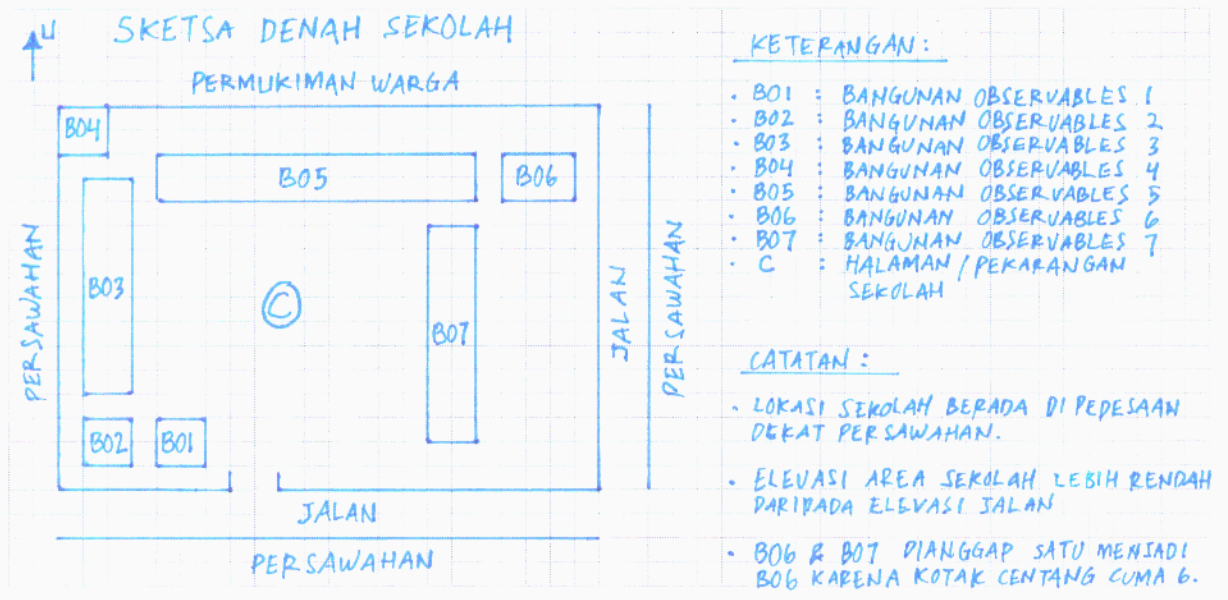 U
SKETSA DENAH SEKOLAH
PERMUKIMAN WARGA
B04
B05
B06
PERSAWAHAN
B03
C
B07
JALAN
PERSAWAHAN
B02
B01
JALAN
PERSAWAHAN
KETERANGAN :
• B01 : BANGUNAN OBSERVABLES 1
• B02 : BANGUNAN OBSERVABLES 2
• B03 : BANGUNAN OBSERVABLES 3
• B04 : BANGUNAN OBSERVABLES 4
• B05 : BANGUNAN OBSERVABLES 5
• B06 : BANGUNAN OBSERVABLES 6
• B07 : BANGUNAN OBSERVABLES 7
• C : HALAMAN / PEKARANGAN
SEKOLAH
CATATAN :
• LOKASI SEKOLAH BERADA DI PEDESAAN
DEKAT PERSAWAHAN.
• ELEVASI AREA SEKOLAH LEBIH RENDAH
DARIPADA ELEVASI JALAN
• B06 & B07 DIANGGAP SATU MENJADI
B06 KARENA KOTAK CENTANG CUMA 6.